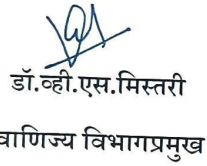 डॉ.व्ही.एस.मिस्तरी
वाणिज्य विभागप्रमुख